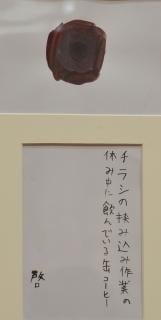 チラシの挟み込み作業の
休み中に飲んでいる缶コーヒー
啓